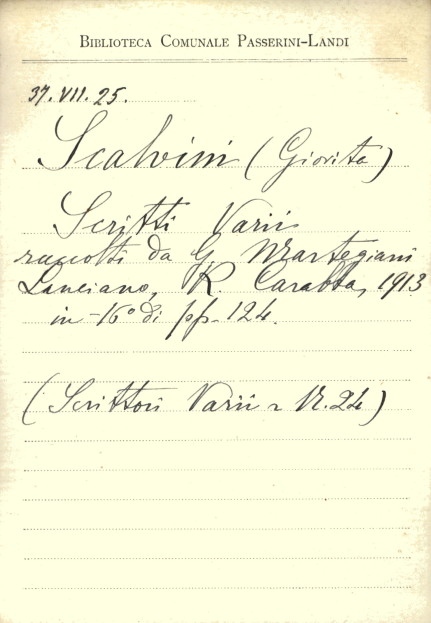 BIBLIOTECA COMUNALE PASSERINI-LANDI
37.VII.25.
Scalvini (Giovita)
Scritti Varii
raccolti da G. Marteggiani
Lanciano, R. Carabba, 1913
in-16° di pp. 124.
(Scrittori Varii N.24)